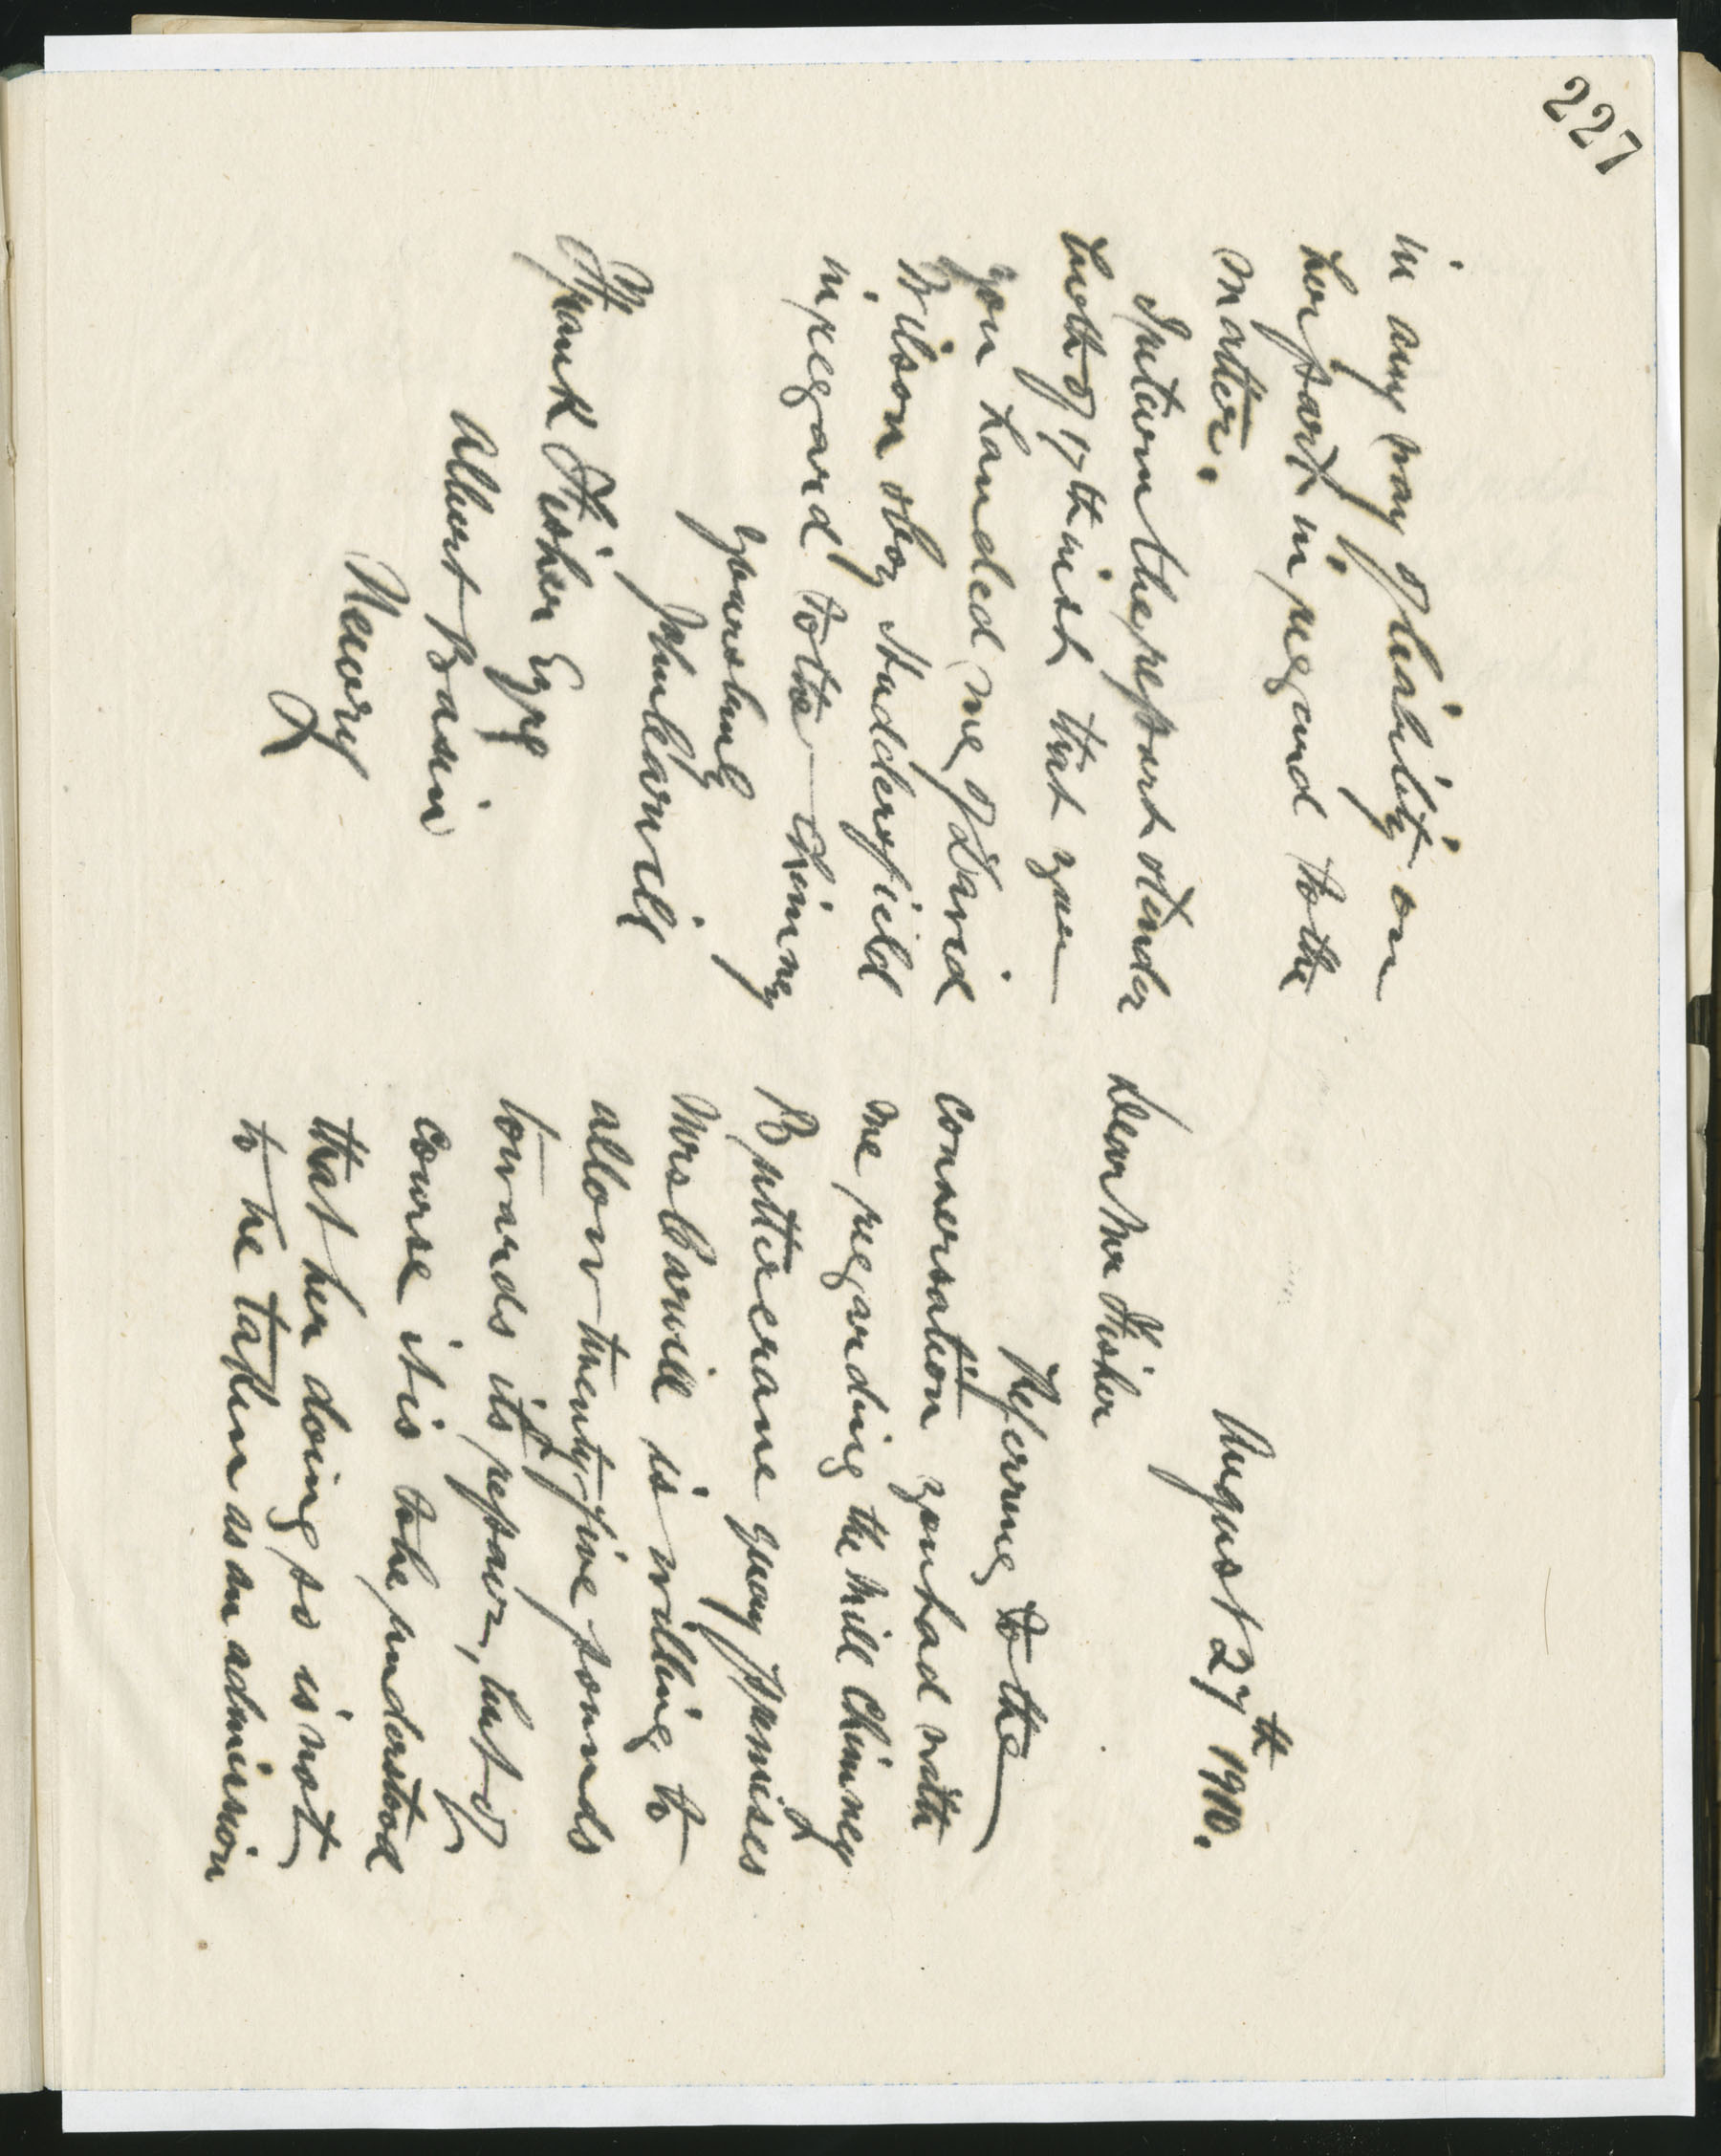 227
August 27th 1910.
Dear Mr Fisher
Referring to the
conversation you had with
me regarding the mill chimney
Buttercrane quay premises
Mrs Carvill is willing to
allow twenty-five pounds
towards its repair, but of
course it is to be understood
that her doing so is not
to be taken as an admission
in any way of liability on
her part in regard to the
matter.
I return the report & tender
both of 17th inst that you
you handed me of David
Wilson & Coy Huddersfield
in regard to the chimney
Yours truly
John Carvill
Frank Fisher Esqre
Albert Basin
Newry